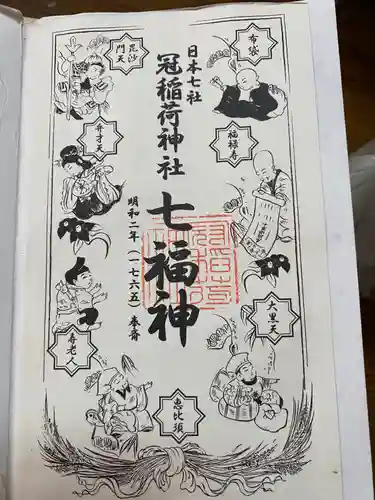 日本七社
冠稲荷神社
七福神
明和二年(一七六五)奉斎
布袋
福禄寿
大黒天
恵比須
寿老人
弁才天
毘沙
門天